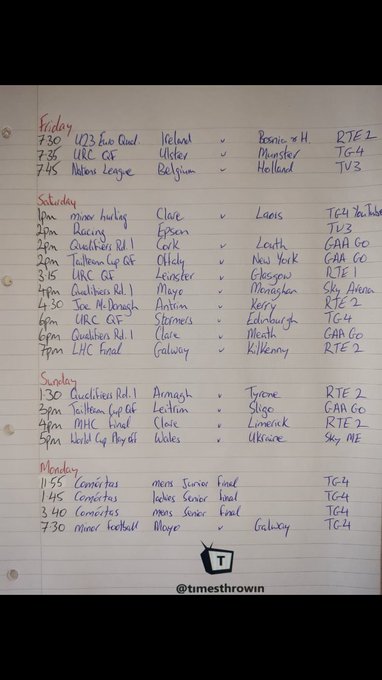 Friday
7.30 U23 Euro Qual. Ireland v Bosnia & H. RTE 2
7:35 URC QF Ulster v Munster TG-4
7:45 Nations League Belgium v Holland TV3
Saturday
1pm minor hurling Clare v Laois TG4 YouTube
2pm Racing Epsom TV3
2pm Qualifiers Rd. 1 Cork v Louth GAA GO
2pm Tailteann Cup QF Offaly v New York GAA GO
3.15 URC QF Leinster v Glasgow RTE 1
4pm Qualifiers Rd. 1 Mayo v Monaghan Sky Arena
4.30 Joe McDonagh Antrim v Kerry RTE 2
6pm URC QF Stormers v Edinburgh TG4
6pm Qualifiers Rd. 1 Clare v Meath GAA GO
7pm LHC Final Galway v Kilkenny RTE 2
Sunday
1.30 Qualifiers Rd. 1 Armagh v Tyrone RTE 2
3pm Tailteann Cup QF Leitrim v Sligo GAA GO
4pm MHC Final Clare v Limerick RTE 2
5pm World Cup Playoff Wales v Ukraine Sky ME
Monday
11:55 Comórtas mens Junior final TG-4
1.45 Comórtas ladies senior final TG-4
3.40 Comórtas mens senior final TG4
7.30 minor football Mayo v Galway TG-4
T
@timesthrowin